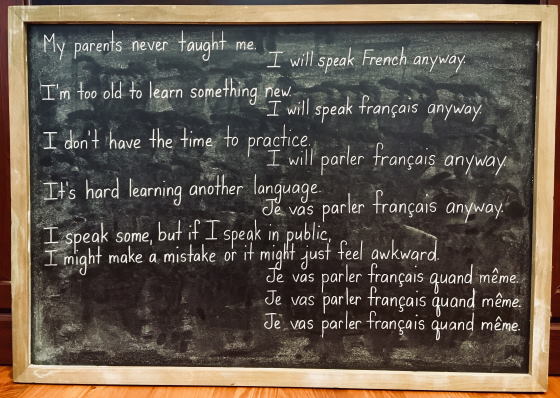 My parents never taught me.
I will speak French anyway.
I'm too old to learn something new.
I will speak français anyway.
I don't have the time to practice.
I will parler français anyway.
It's hard learning another language.
Je vas parler français anyway.
I speak some, but if I speak in public,
I might make a mistake or it might just feel awkward.
Je vas parler français quand même.
Je vas parler français quand même.
Je vas parler français quand même.